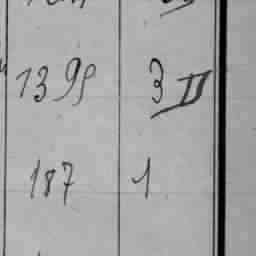 1398 3 II
187 1